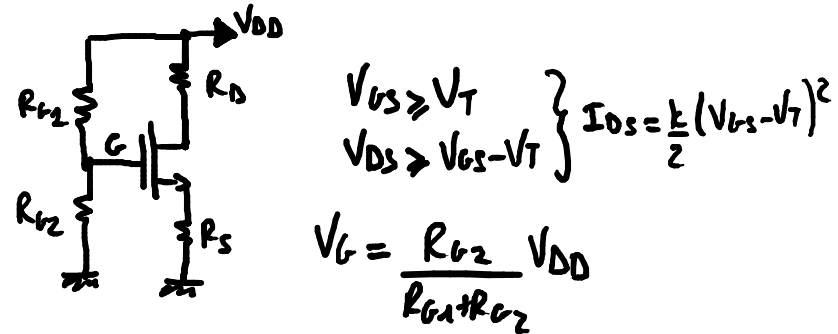 V_DD
R_D
R_G1
G
R_G2
R_S
V_GS ≥ V_T
V_DS ≥ V_GS - V_T
} I_DS = k/2 (V_GS - V_T)^2
V_G = R_G2 / (R_G1 + R_G2) V_DD